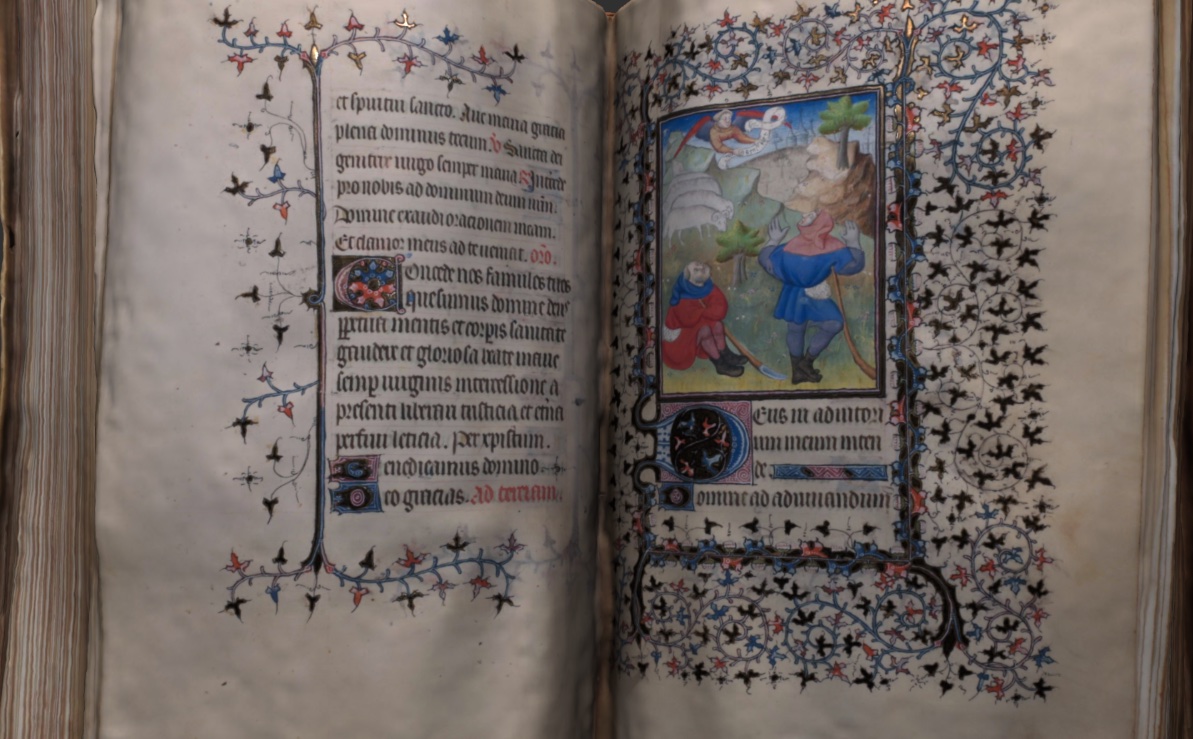 et spiritui sancto. Aue maria gracia
plena dominus tecum. V Sancta dei
genitrix uirgo semper maria R Intercede
pro nobis ad dominum deum nrm.
Domine exaudi oracionem meam.
Et clamor meus ad te ueniat. oro.
Concede nos famulos tuos
quesumus domine deus
ppetua mentis et corpis sanitate
gaudere et gloriosa beate marie
semp uirginis intercessione a
presenti liberari tristicia et etna
perfrui leticia. Per xpistum.
Benedicamus domino.
Deo gracias. Ad terciam.
Deus in adiutori
um meum inten
de
Domine ad adiuuandum